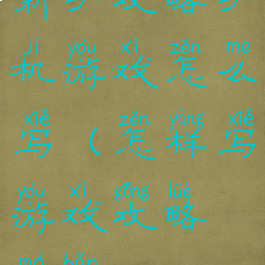 攻略
jī yóu xì zěn me
机游戏怎么
xiě zěn yàng xiě
写（怎样写
yóu xì gōng lüè
游戏攻略
mó bǎn